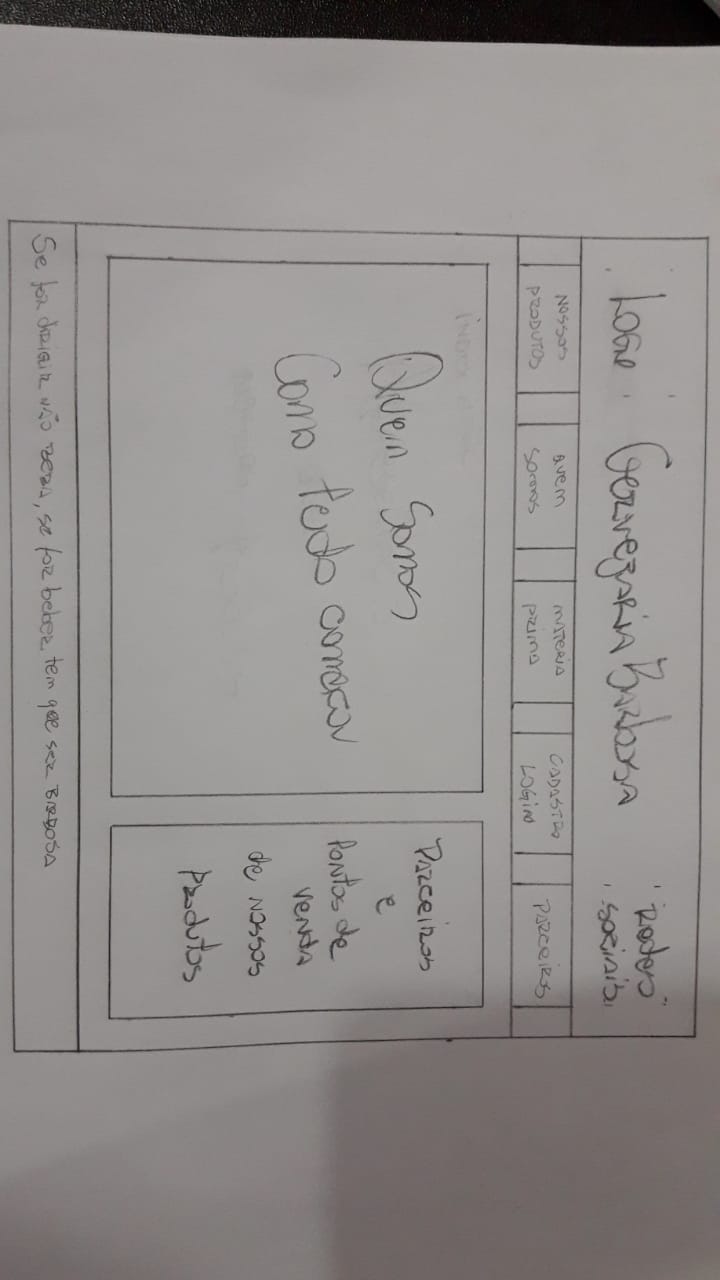 Logo
Cervezaria Barbosa
Redes
sociais
NOSSOS
PRODUTOS
QUEM
SOMOS
MATERIA
PRIMA
CADASTRO
LOGIN
PARCEIROS
Quem Somos
Como tudo começou
PARCEIROS
e
Pontos de
VENDA
de NOSSOS
Produtos
Se for dirigir NÃO BEBA, se for beber tem que ser BARBOSA